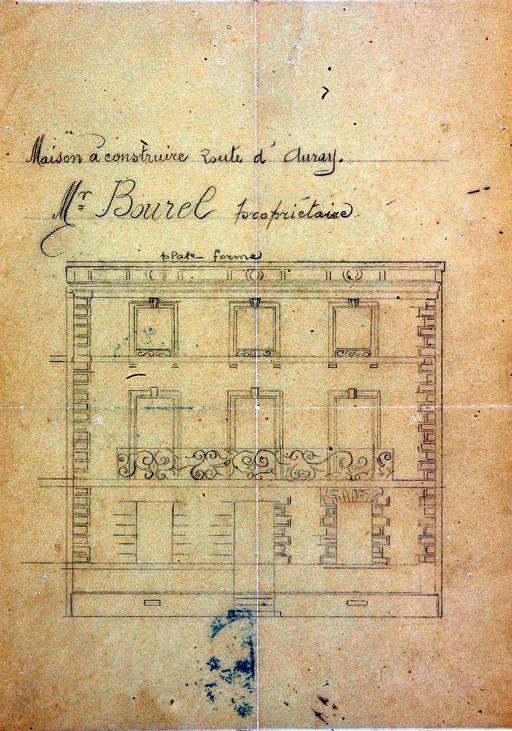 Maison à construire Route d'Auray.
Mr Bourel propriétaire.
plate forme